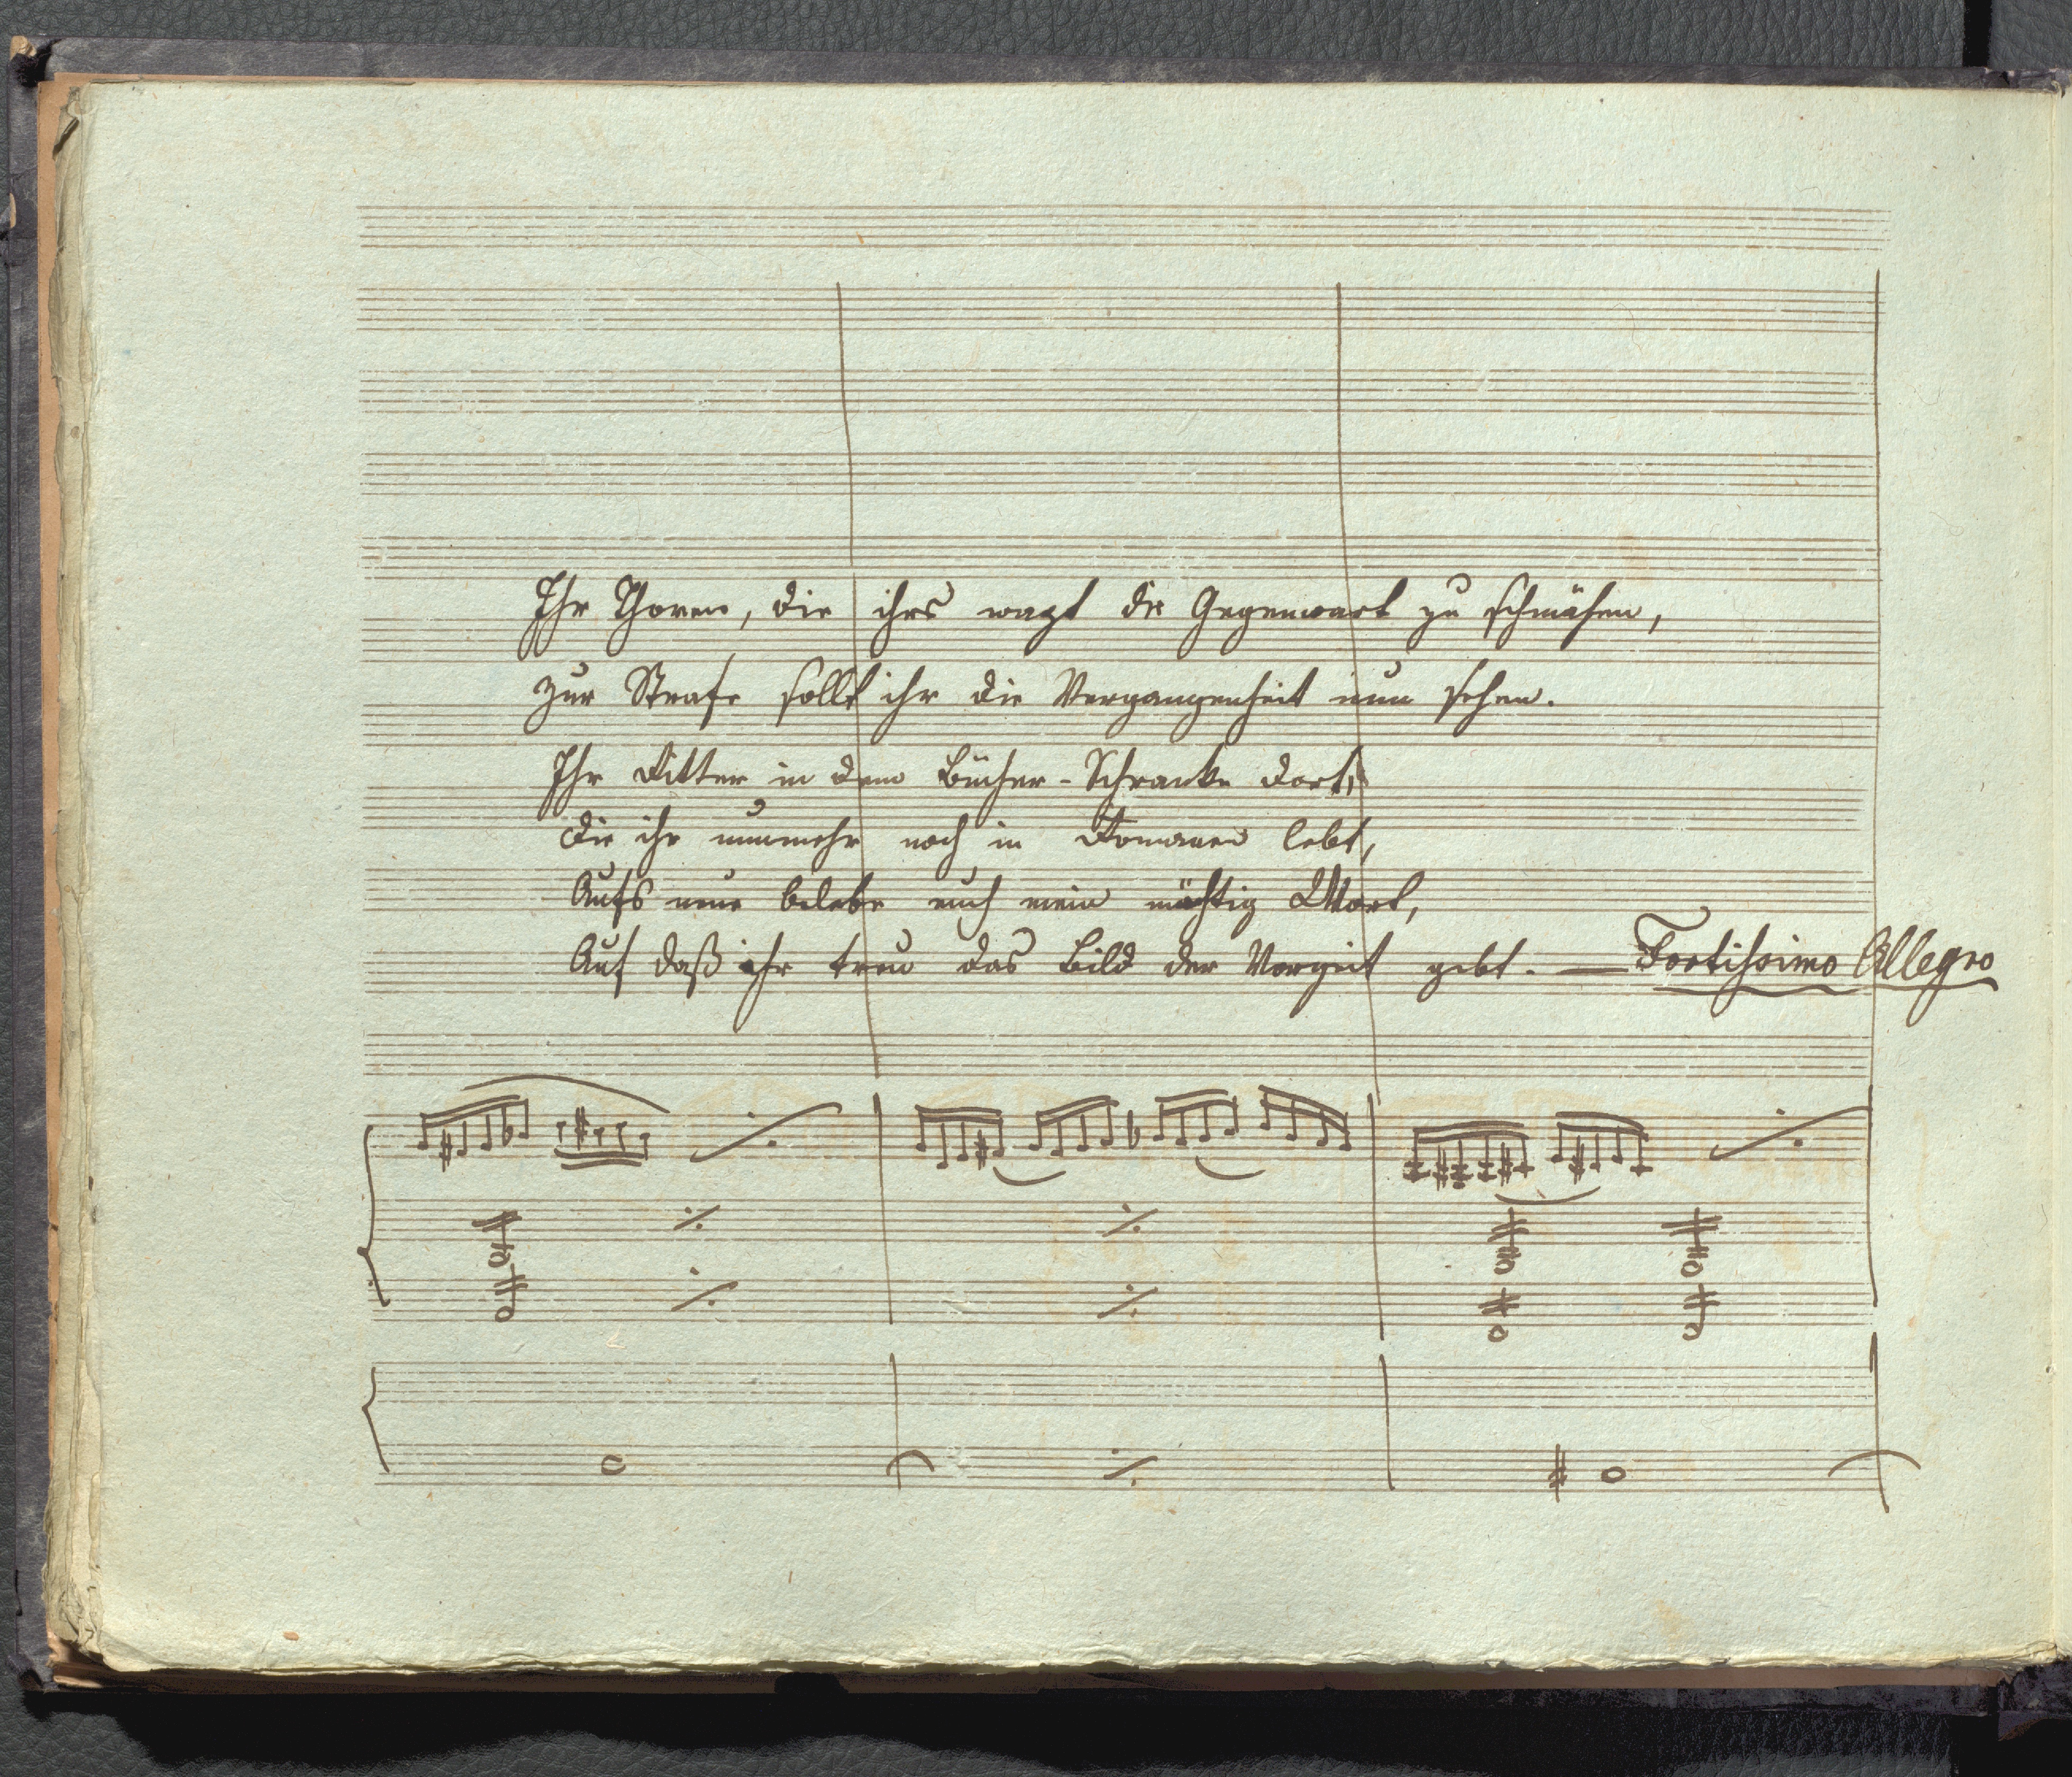 Ihr Thoren, die ihrs wagt die Gegenwart zu schmähen,
zur Strafe sollt ihr die Vergangenheit nun sehen.
Ihr Ritter in dem Bücher-Schranke dort,
die ihr nunmehr noch in Romanen lebt,
Aufs neue belebe euch mein mächtig Wort,
Auf daß ihr treu das Bild der Vorzeit gebt. — Fortissimo Allegro